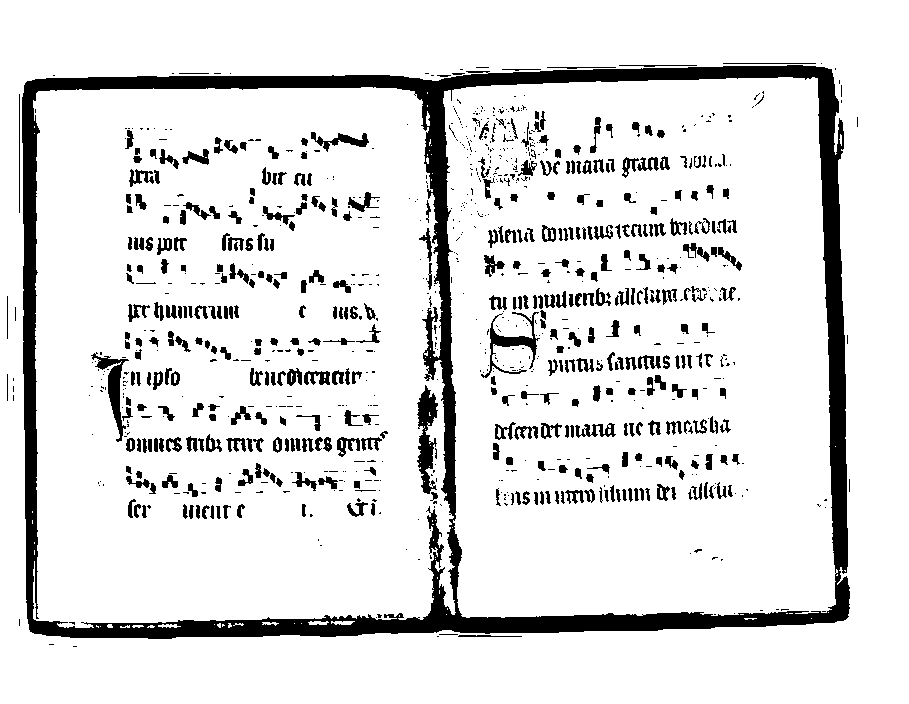 pera bit eu
ius pote stas su
per humerum e ius. v.
In ipso benedicentur
omnes trib; terre omnes gentes
ser uient e i.
Ave maria gracia
plena dominus tecum benedicta
tu in mulierib; alleluia. euouae.
Spiritus sanctus in te
descendet maria ne ti meas ha
bens in utero filium dei allelu